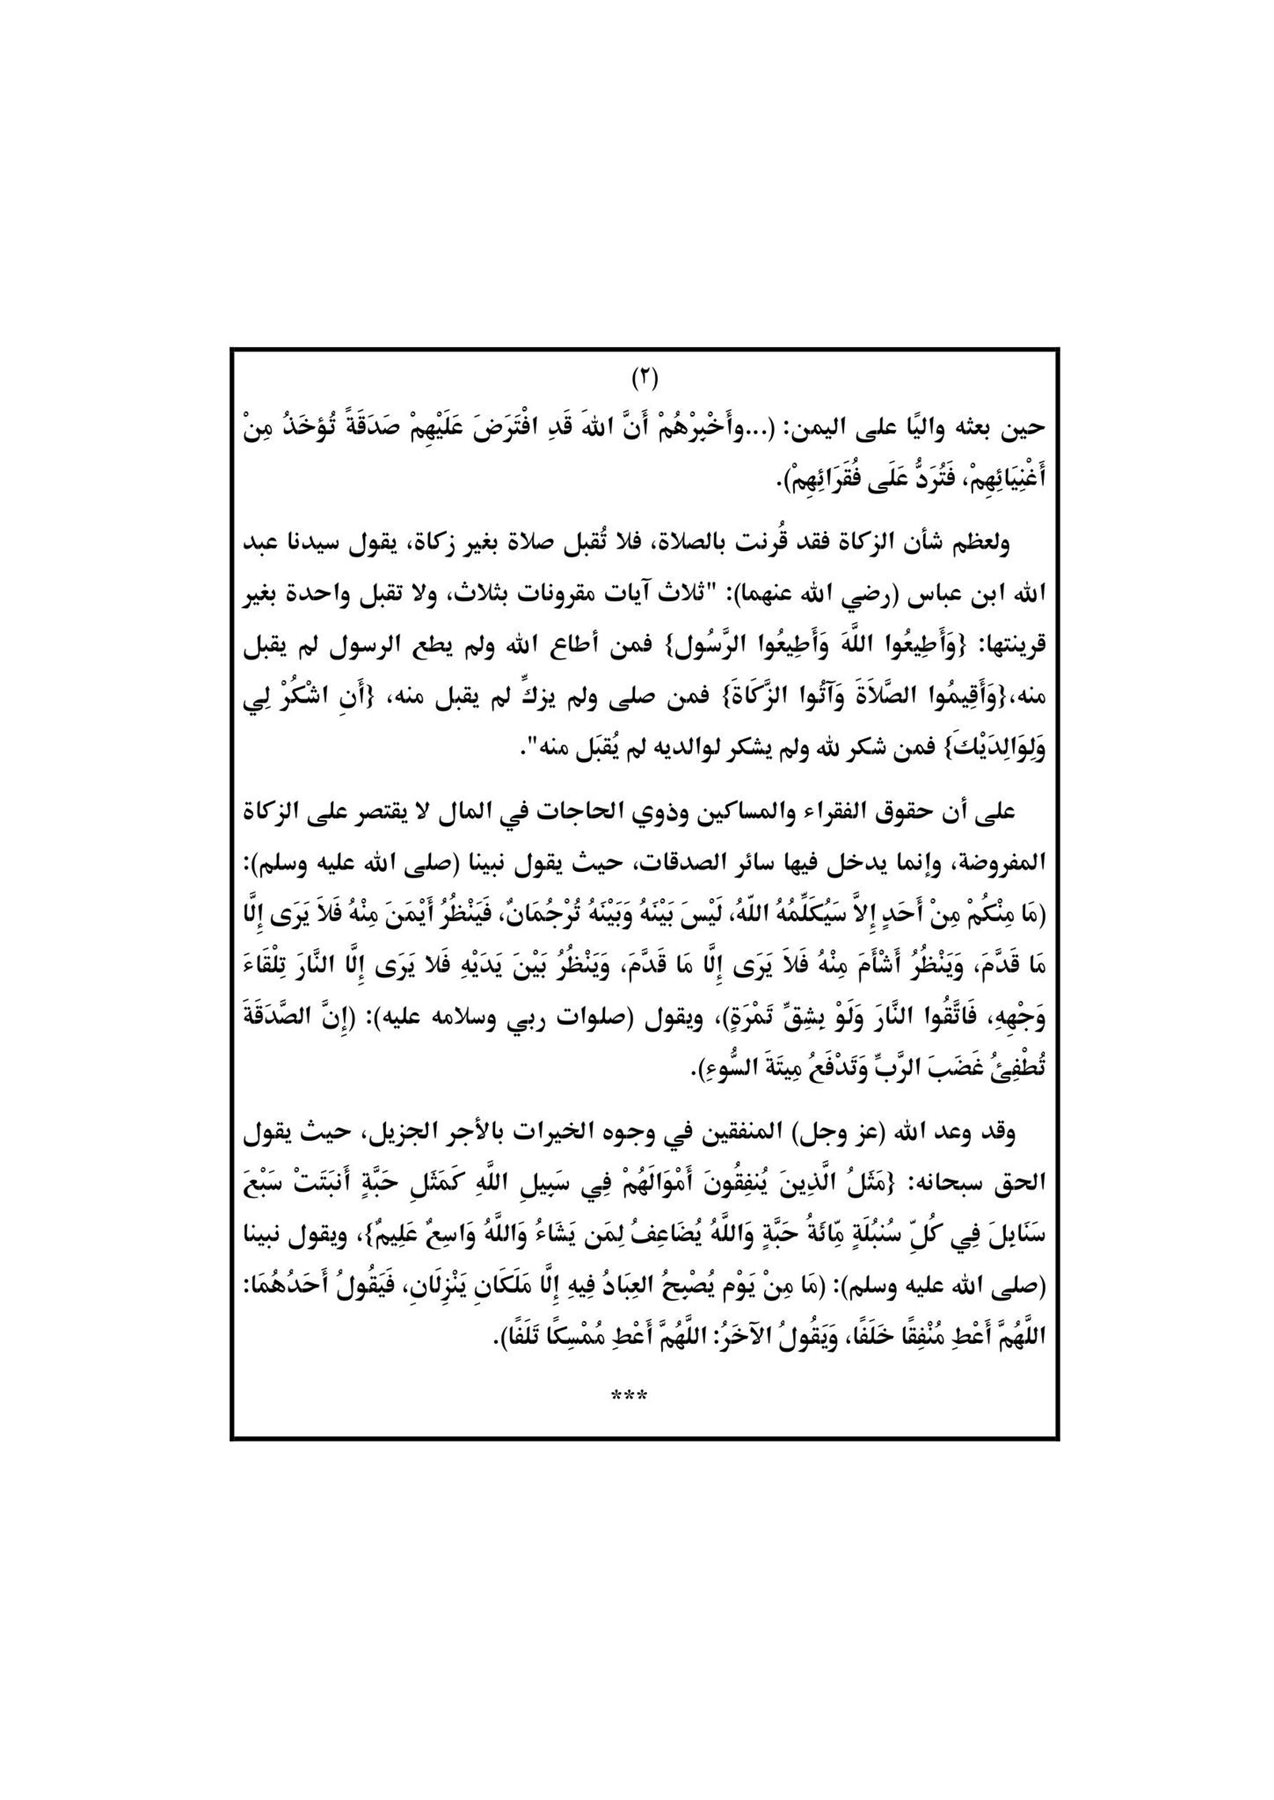 (٢)
حين بعثه واليًا على اليمن: (...وأَخْبِرْهُمْ أَنَّ اللهَ قَدِ افْتَرَضَ عَلَيْهِمْ صَدَقَةً تُؤخَذُ مِنْ
أَغْنِيَائِهِمْ، فَتُرَدُّ عَلَى فُقَرَائِهِمْ).
ولعظم شأن الزكاة فقد قُرنت بالصلاة، فلا تُقبل صلاة بغير زكاة، يقول سيدنا عبد
الله ابن عباس (رضي الله عنهما): "ثلاث آيات مقرونات بثلاث، ولا تقبل واحدة بغير
قرينتها: {وَأَطِيعُوا اللَّهَ وَأَطِيعُوا الرَّسُول} فمن أطاع الله ولم يطع الرسول لم يقبل
منه،{وَأَقِيمُوا الصَّلاَةَ وَآتُوا الزَّكَاةَ} فمن صلى ولم يزكِّ لم يقبل منه، {أَنِ اشْكُرْ لِي
وَلِوَالِدَيْكَ} فمن شكر لله ولم يشكر لوالديه لم يُقبَل منه".
على أن حقوق الفقراء والمساكين وذوي الحاجات في المال لا يقتصر على الزكاة
المفروضة، وإنما يدخل فيها سائر الصدقات، حيث يقول نبينا (صلى الله عليه وسلم):
(مَا مِنْكُمْ مِنْ أَحَدٍ إِلاَّ سَيُكَلِّمُهُ اللهُ، لَيْسَ بَيْنَهُ وَبَيْنَهُ تُرْجُمَانٌ، فَيَنْظُرُ أَيْمَنَ مِنْهُ فَلاَ يَرَى إِلَّا
مَا قَدَّمَ، وَيَنْظُرُ أَشْأَمَ مِنْهُ فَلاَ يَرَى إِلَّا مَا قَدَّمَ، وَيَنْظُرُ بَيْنَ يَدَيْهِ فَلا يَرَى إِلَّا النَّارَ تِلْقَاءَ
وَجْهِهِ، فَاتَّقُوا النَّارَ وَلَوْ بِشِقِّ تَمْرَةٍ)، ويقول (صلوات ربي وسلامه عليه): (إِنَّ الصَّدَقَةَ
تُطْفِئُ غَضَبَ الرَّبِّ وَتَدْفَعُ مِيتَةَ السُّوءِ).
وقد وعد الله (عز وجل) المنفقين في وجوه الخيرات بالأجر الجزيل، حيث يقول
الحق سبحانه: {مَثَلُ الَّذِينَ يُنفِقُونَ أَمْوَالَهُمْ فِي سَبِيلِ اللَّهِ كَمَثَلِ حَبَّةٍ أَنبَتَتْ سَبْعَ
سَنَابِلَ فِي كُلِّ سُنبُلَةٍ مِّائَةُ حَبَّةٍ وَاللَّهُ يُضَاعِفُ لِمَن يَشَاءُ وَاللَّهُ وَاسِعٌ عَلِيمٌ}، ويقول نبينا
(صلى الله عليه وسلم): (مَا مِنْ يَوْم يُصْبِحُ العِبَادُ فِيهِ إِلَّا مَلَكَانِ يَنْزِلَانِ، فَيَقُولُ أَحَدُهُمَا:
اللَّهُمَّ أَعْطِ مُنْفِقًا خَلَفًا، وَيَقُولُ الآخَرُ: اللَّهُمَّ أَعْطِ مُمْسِكًا تَلَفًا).
***